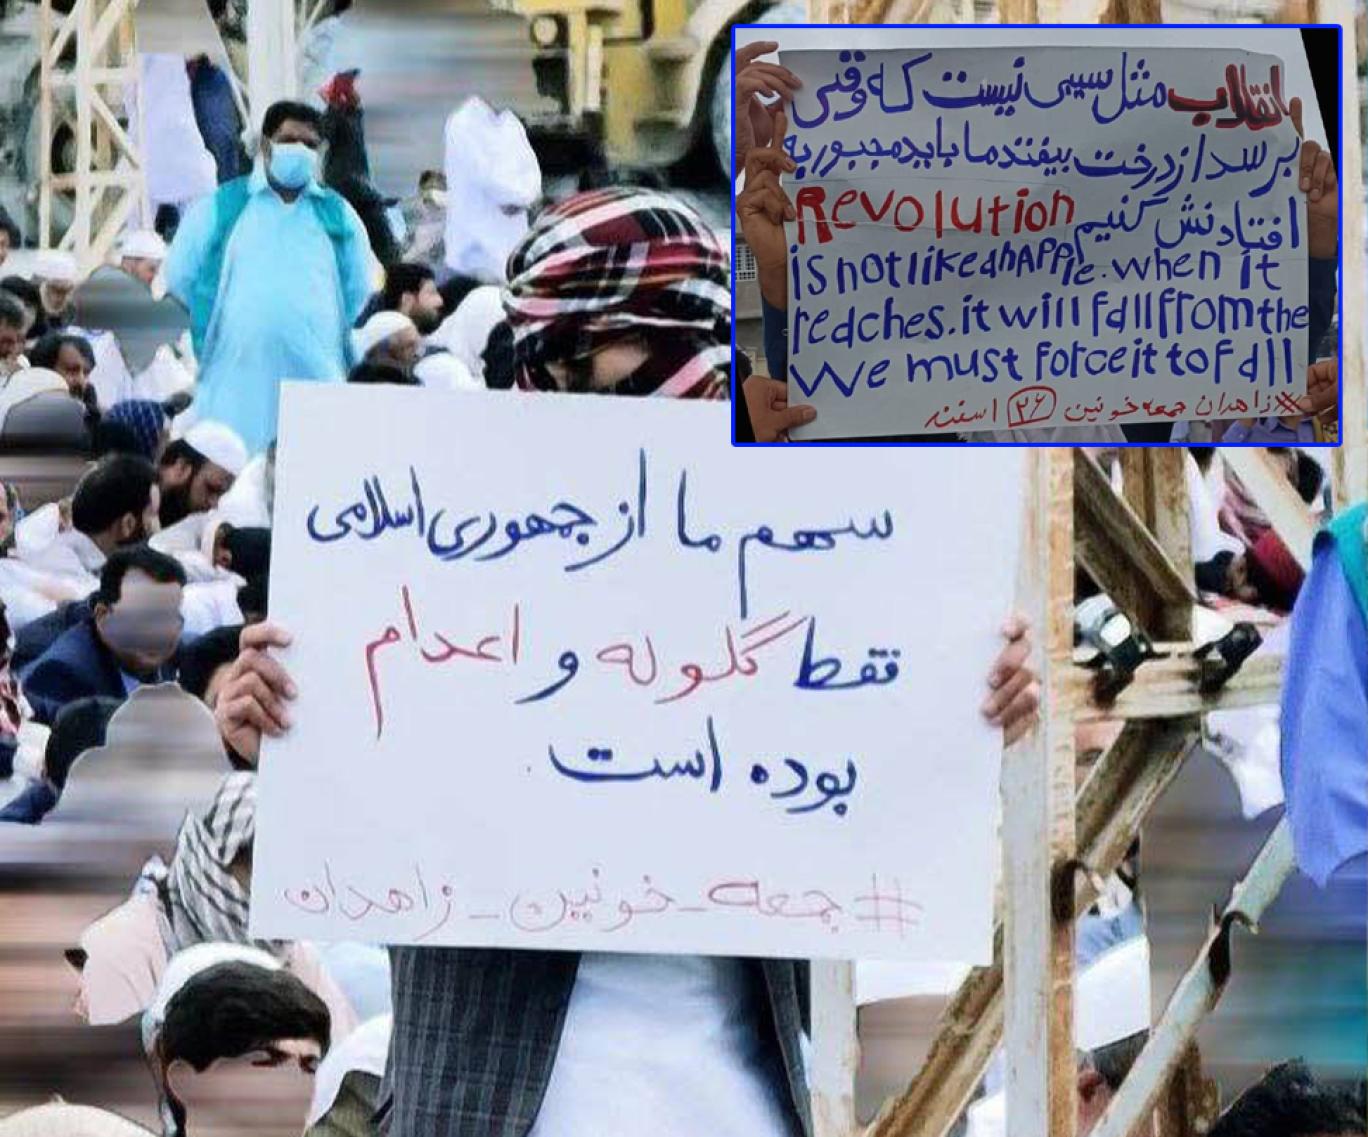 انقلاب مثل سیبی نیست که وقتی
برسد از درخت بیفتد ما باید مجبور به
افتادنش کنیم
Revolution
is not like ahApple. when it
reaches. it will fall from the
We must force it to fall
#زاهدان جمعه خونین ۲۶ اسفند
سهم ما از جمهوری اسلامی
فقط گلوله و اعدام
بوده است.
#جمعه_خونین_زاهدان